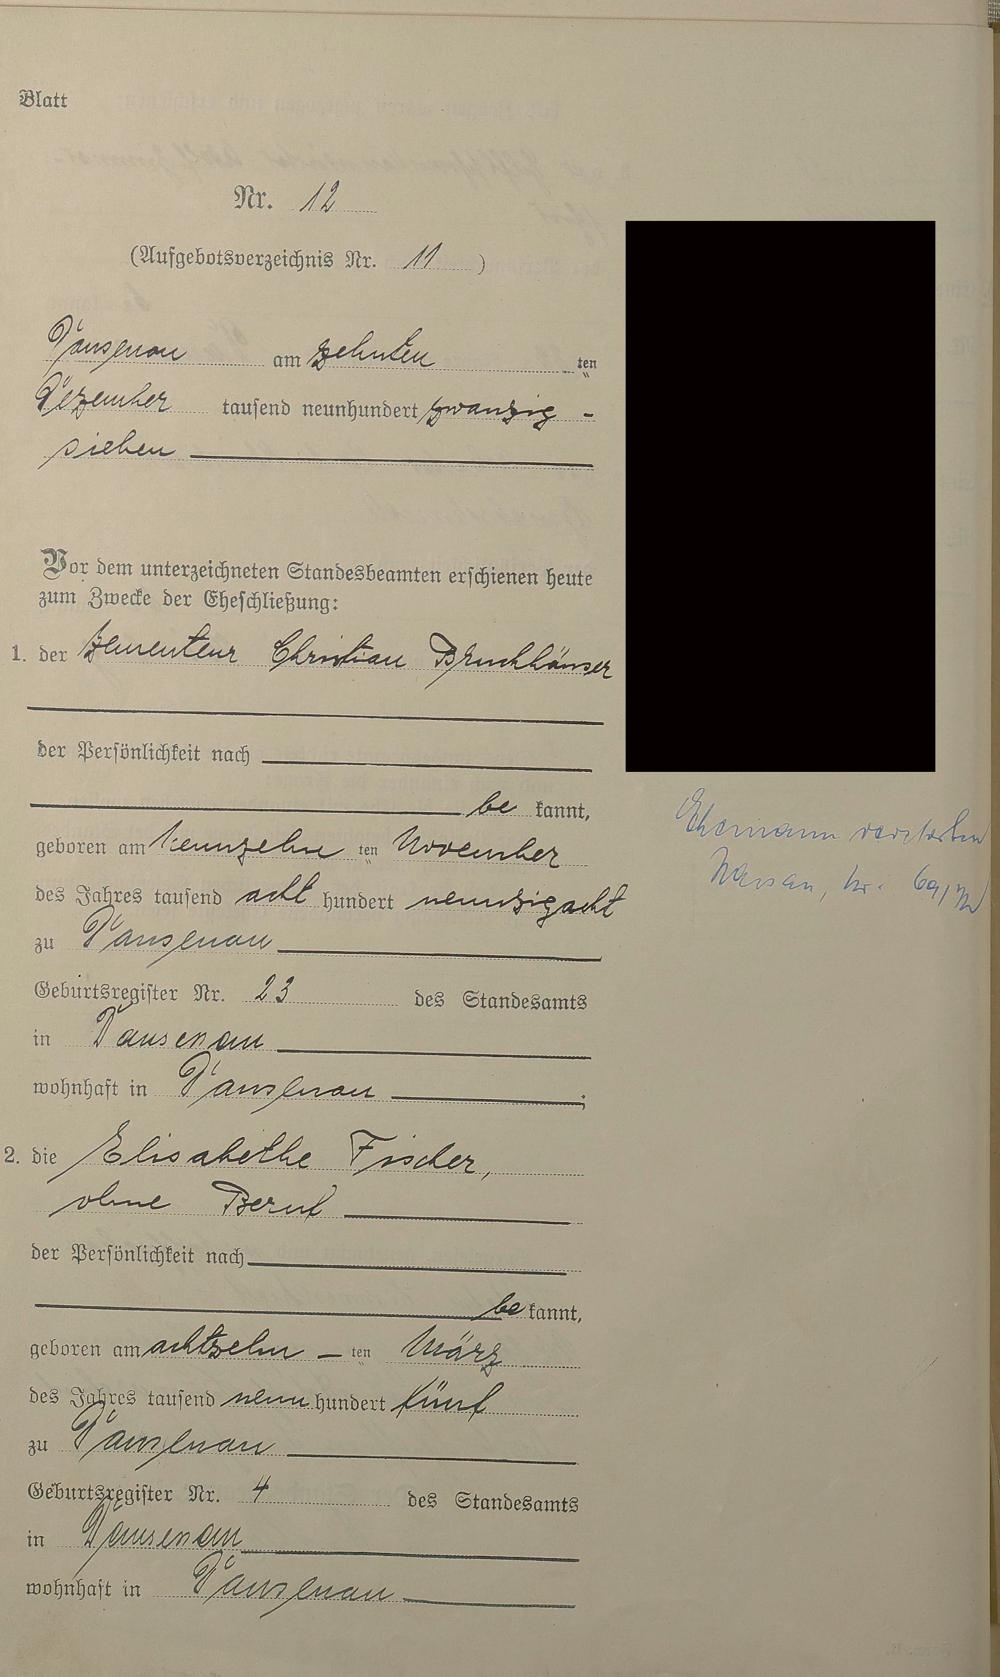 Blatt
Nr. 12
(Aufgebotsverzeichnis Nr. 11 )
Dausenau am zehnten ten
Dezember tausend neunhundert zwanzig -
sieben
Vor dem unterzeichneten Standesbeamten erschienen heute
zum Zwecke der Eheschließung:
1. der Zementeur Christian Bruchhäuser
der Persönlichkeit nach
be kannt,
geboren am neunzehn ten November
des Jahres tausend acht hundert neunzigacht
zu Dausenau
Geburtsregister Nr. 23 des Standesamts
in Dausenau
wohnhaft in Dausenau ;
2. die Elisabethe Fischer,
ohne Beruf
der Persönlichkeit nach
be kannt,
geboren am achtzehn - ten März
des Jahres tausend neun hundert fünf
zu Dausenau
Geburtsregister Nr. 4 des Standesamts
in Dausenau
wohnhaft in Dausenau
Ehemann verstorben
Nassau, Nr.